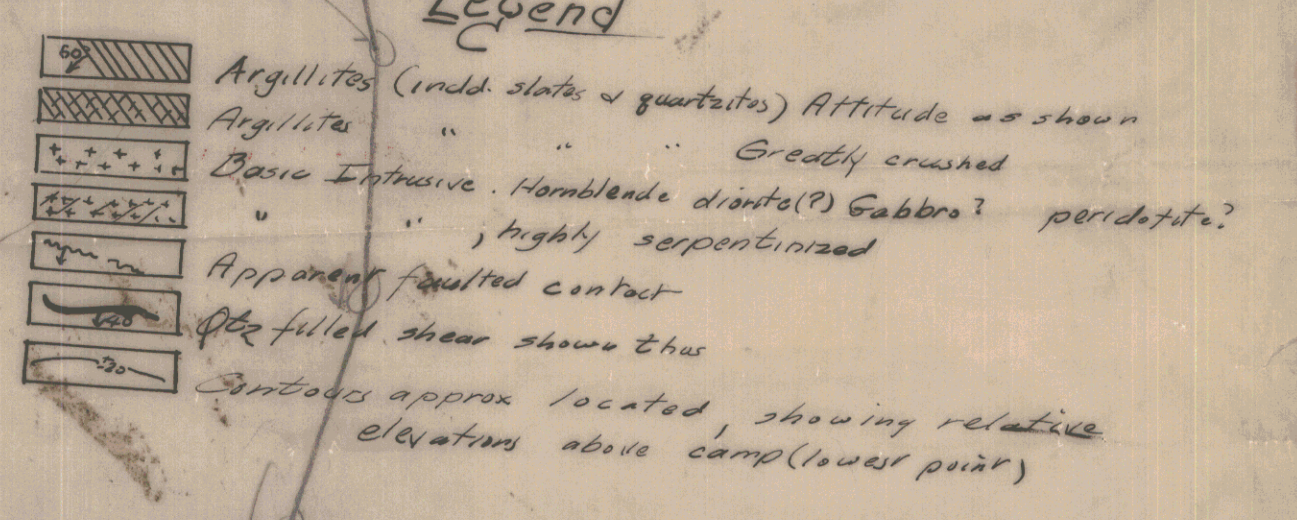 Legend
60° Argillites (incld. slates & quartzites) Attitude as shown
Argillites " " " Greatly crushed
Basic Intrusive. Hornblende diorite(?) Gabbro? peridotite?
" " , highly serpentinized
Apparent faulted contact
40 Qtz filled shear shown thus
+20 Contours approx located, showing relative
elevations above camp (lowest point)